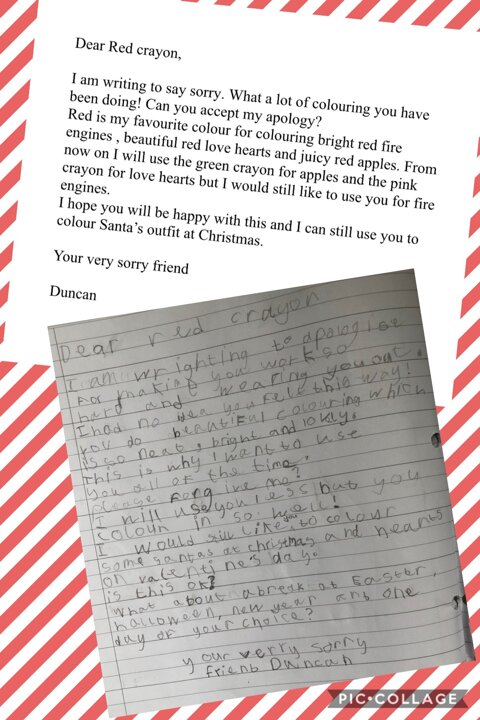 Dear Red crayon,
I am writing to say sorry. What a lot of colouring you have
been doing! Can you accept my apology?
Red is my favourite colour for colouring bright red fire
engines , beautiful red love hearts and juicy red apples. From
now on I will use the green crayon for apples and the pink
crayon for love hearts but I would still like to use you for fire
engines.
I hope you will be happy with this and I can still use you to
colour Santa's outfit at Christmas.
Your very sorry friend
Duncan
Dear red crayon
I am wrighting to apologise
For making you work so
hard and wearing you out.
I had no you this way!
You do beautiful colouring which
is so neat, bright and lovly.
This is why I want to use
you all of the time.
please forgive me?
I will use you less but you
colour in so well!
I would like you to colour
some santas at christmas and hearts
on valentine's day.
is this ok?
What about a break at Easter,
halloween, new year and one
day of your choice?
your verry sorry
friend Duncan
PIC•COLLAGE